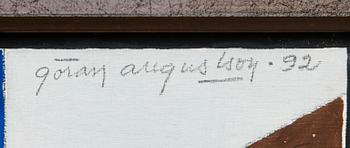 göran augustson · 92